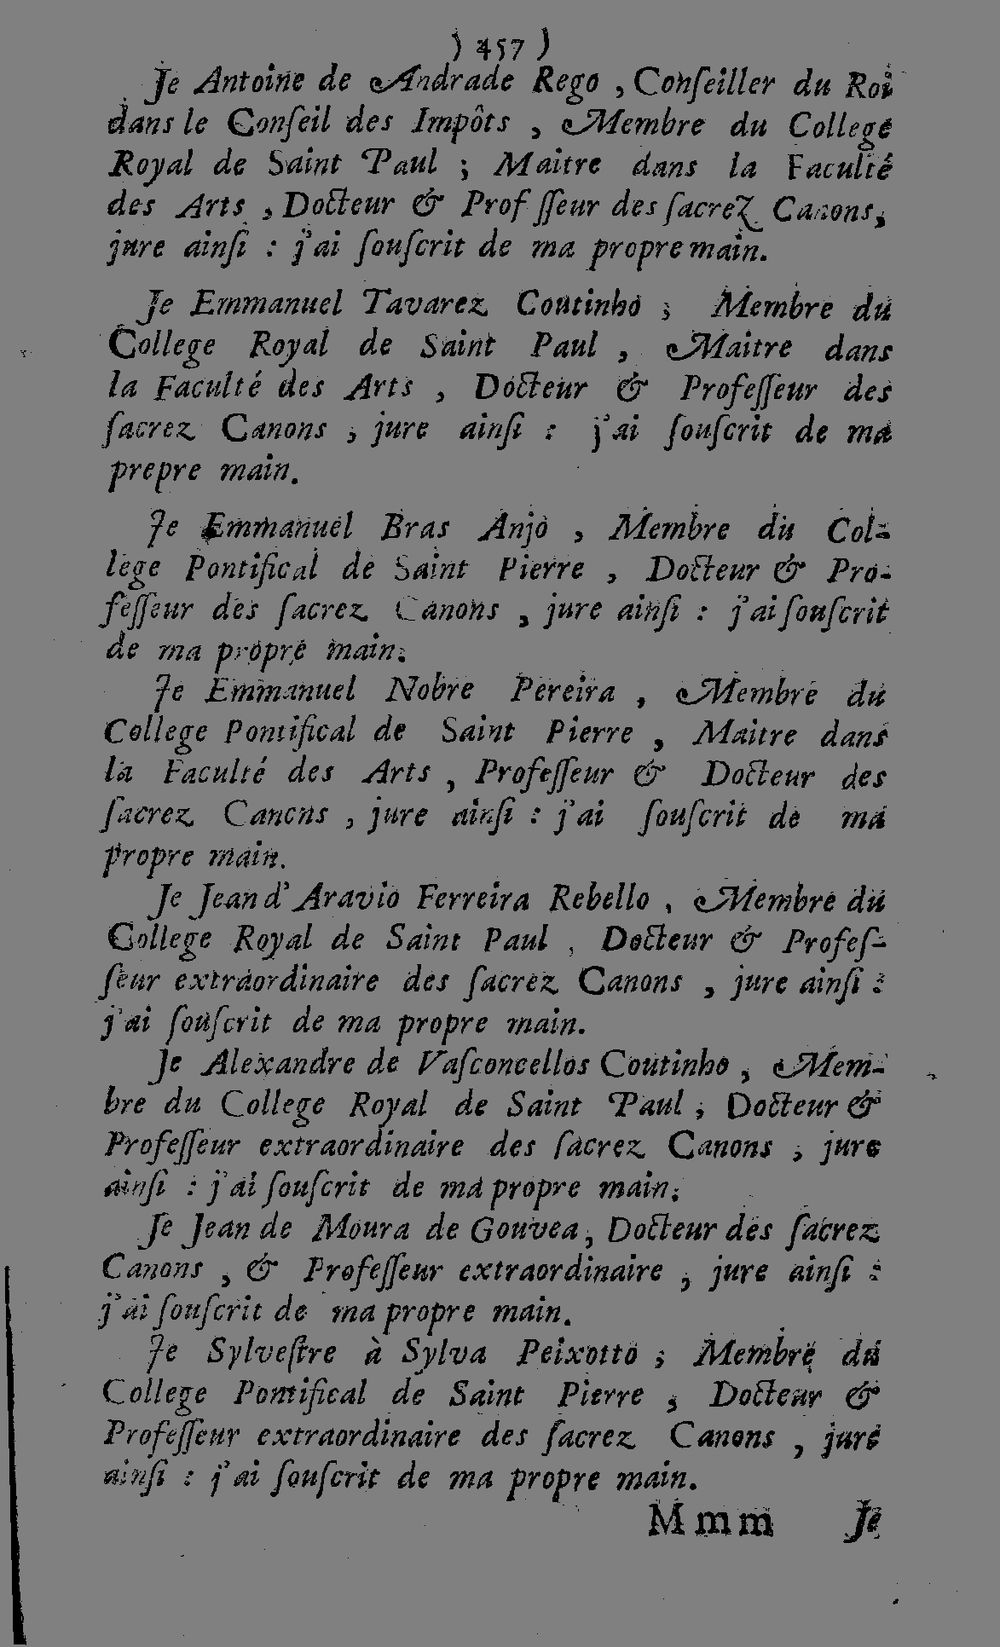 ) 457 )
Je Antoine de Andrade Rego , Conſeiller du Roi
dans le Conſeil des Impôts , Membre du College
Royal de Saint Paul ; Maitre dans la Faculté
des Arts , Docteur & Prof ſſeur des ſacrez Canons,
jure ainſi : j'ai ſouſcrit de ma propre main.
Je Emmanuel Tavarez Coutinho ; Membre du
College Royal de Saint Paul , Maitre dans
la Faculté des Arts , Docteur & Profeſſeur des
ſacrez Canons ; jure ainſi : j'ai ſouſcrit de ma
prepre main.
Je Emmanuel Bras Anjo , Membre du Col-
lege Pontifical de Saint Pierre , Docteur & Pro-
feſſeur des ſacrez Canons , jure ainſi : j'ai ſouſcrit
de ma propre main.
Je Emmanuel Nobre Pereira , Membre du
College Pontifical de Saint Pierre , Maitre dans
la Faculté des Arts , Profeſſeur & Docteur des
ſacrez Canons , jure ainſi : j'ai ſouſcrit de ma
propre main.
Je Jean d'Aravio Ferreira Rebello , Membre du
College Royal de Saint Paul , Docteur & Profeſ-
ſeur extraordinaire des ſacrez Canons , jure ainſi :
j'ai ſouſcrit de ma propre main.
Je Alexandre de Vaſconcellos Coutinho , Mem-
bre du College Royal de Saint Paul ; Docteur &
Profeſſeur extraordinaire des ſacrez Canons ; jure
ainſi : j'ai ſouſcrit de ma propre main.
Je Jean de Moura de Gouvea, Docteur des ſacrez
Canons , & Profeſſeur extraordinaire , jure ainſi :
j'ai ſouſcrit de ma propre main.
Je Sylveſtre à Sylva Peixotto ; Membre du
College Pontifical de Saint Pierre , Docteur &
Profeſſeur extraordinaire des ſacrez Canons , jure
ainſi : j'ai ſouſcrit de ma propre main.
Mmm Je